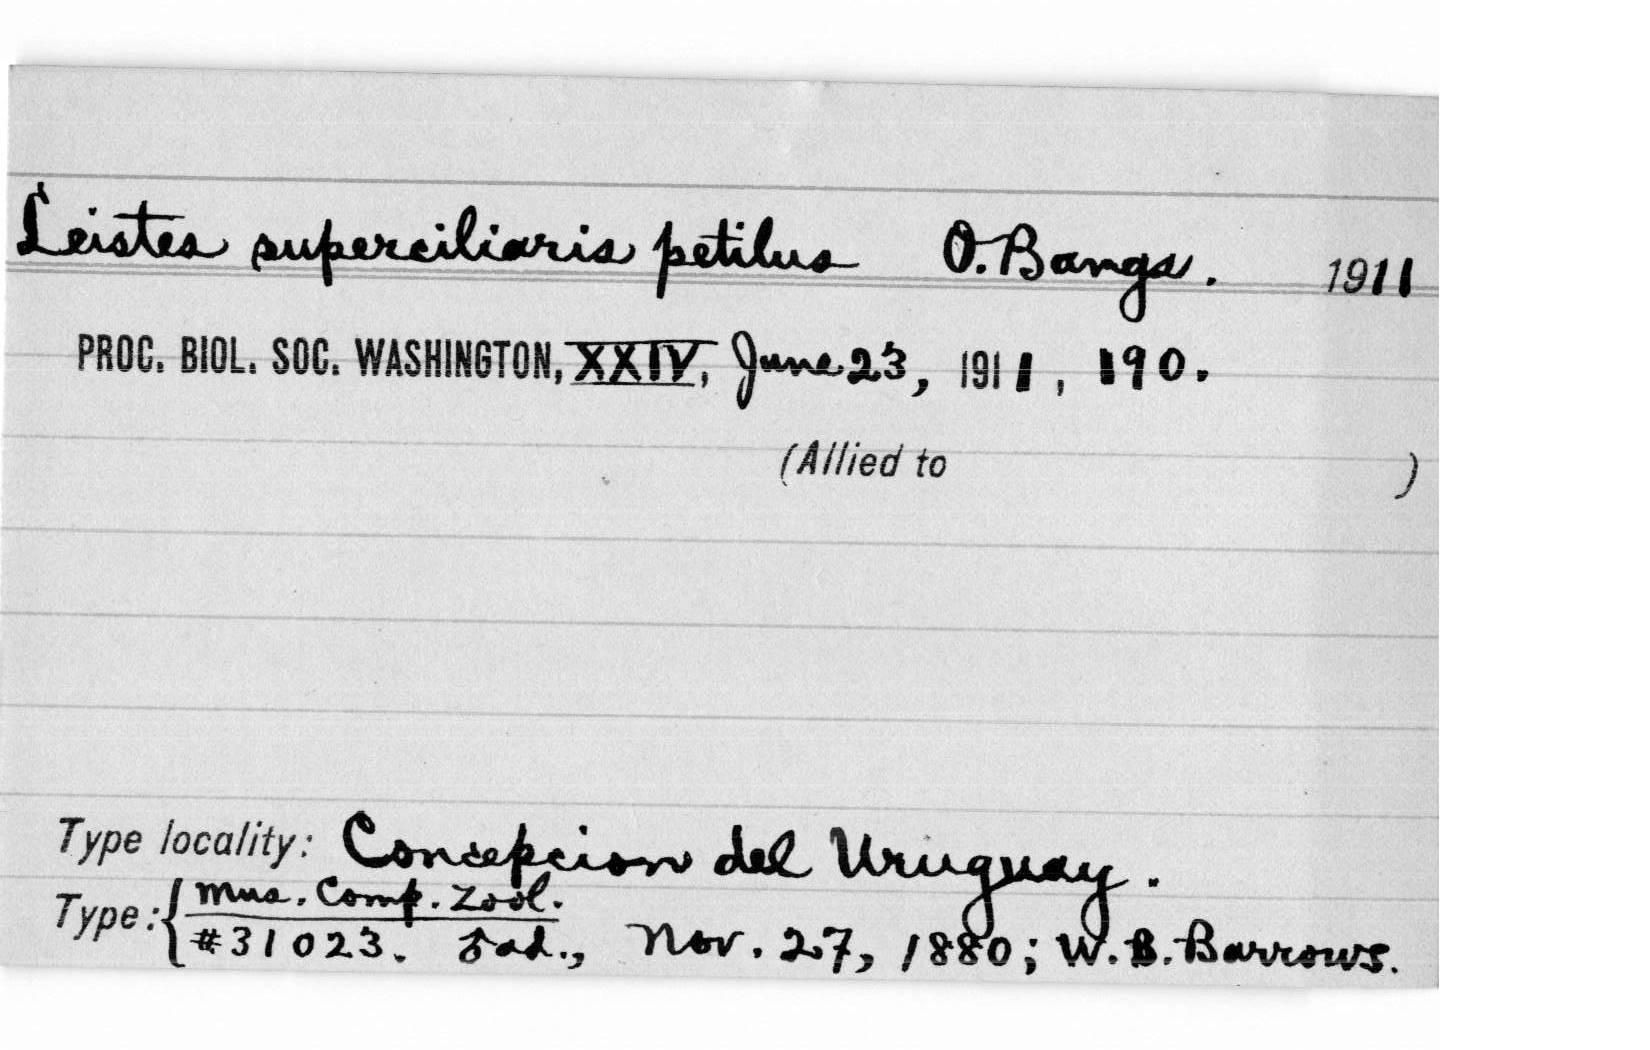 Leistes superciliaris petilus O. Bangs. 1911
PROC. BIOL. SOC. WASHINGTON, XXIV, June 23, 1911, 190.
(Allied to )
Type locality: Concepcion del Uruguay.
Type: { Mus. Comp. Zool.
#31023. ♂ ad., Nov. 27, 1880; W. B. Barrows.